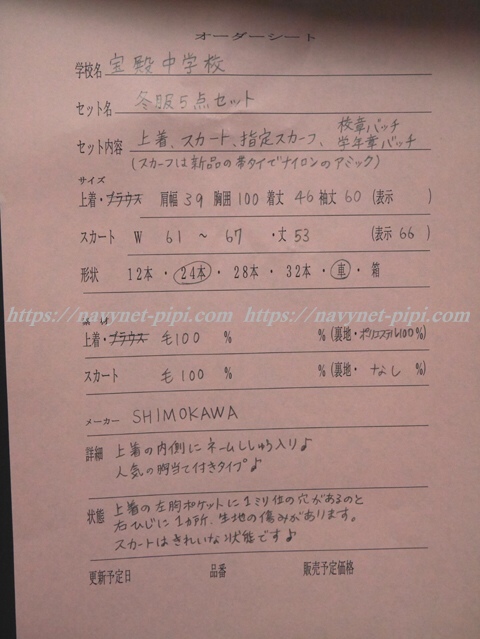 オーダーシート
学校名 宝殿中学校
セット名 冬服5点セット
セット内容 上着、スカート、指定スカーフ、校章バッチ 学年章バッチ
(スカーフは新品の帯タイでナイロンのアミック)
サイズ
上着・ブラウス 肩幅 39 胸囲 100 着丈 46 袖丈 60 (表示 )
スカート W 61 ～ 67 ・丈 53 (表示 66 )
形状 12本 ・ 24本 ・ 28本 ・ 32本 ・ 車 ・ 箱
https://navynet-pipi.com https://navynet-pipi.com
上着・ブラウス 毛100 % % (裏地・ポリエステル100%)
スカート 毛100 % % (裏地・なし %)
メーカー SHIMOKAWA
詳細 上着の内側にネームししゅう入り♪
人気の胸当て付きタイプ♪
状態 上着の左胸ポケットに1ミリ位の穴があるのと
右ひじに1カ所、生地の傷みがあります。
スカートはきれいな状態です♪
更新予定日 品番 販売予定価格